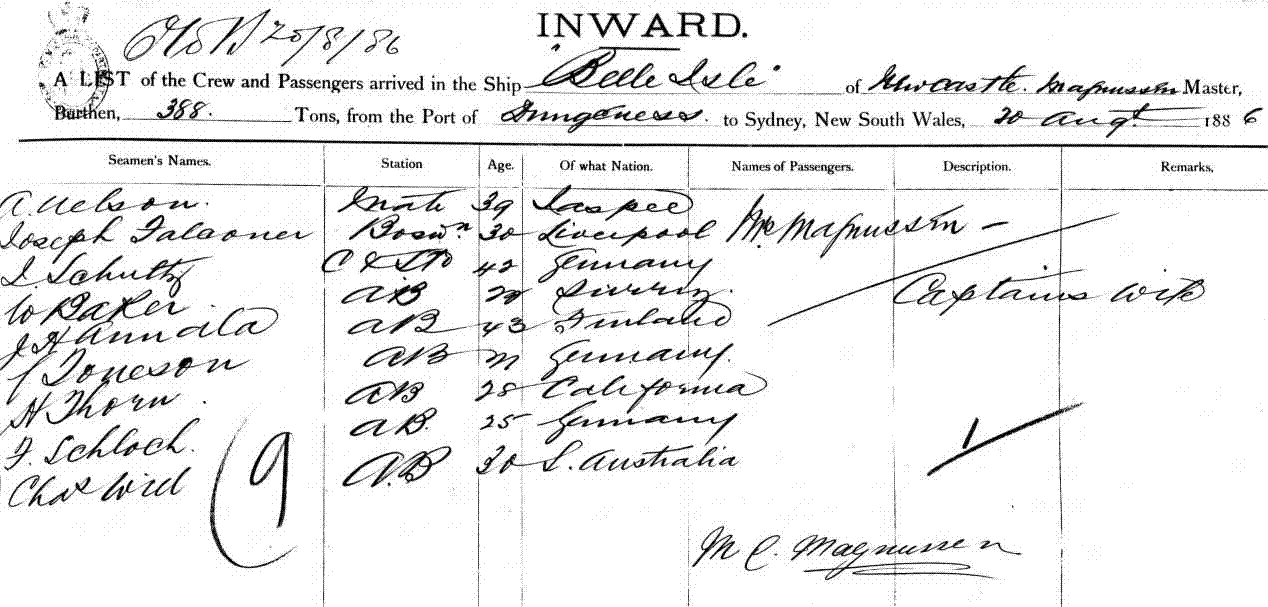 INWARD.
20/8/86
A LIST of the Crew and Passengers arrived in the Ship "Belle Isle" of Newcastle. Magnussen Master,
Burthen, 388. Tons, from the Port of Dungeness. to Sydney, New South Wales, 20 Augt. 1886
Seamen's Names. Station Age. Of what Nation. Names of Passengers. Description. Remarks.
A. Nelson. Mate 39
Joseph Falconer Bosun 30 Liverpool Mrs Magnussen -
Schultz C & Std 42 Germany
W Baker AB Captains wife
AB 43 Finland
AB Germany.
H Thorn. AB 28 California
F. Schloch. AB. 25 Germany
Chas Wid A.B 30 S. Australia
9
M C. Magnussen